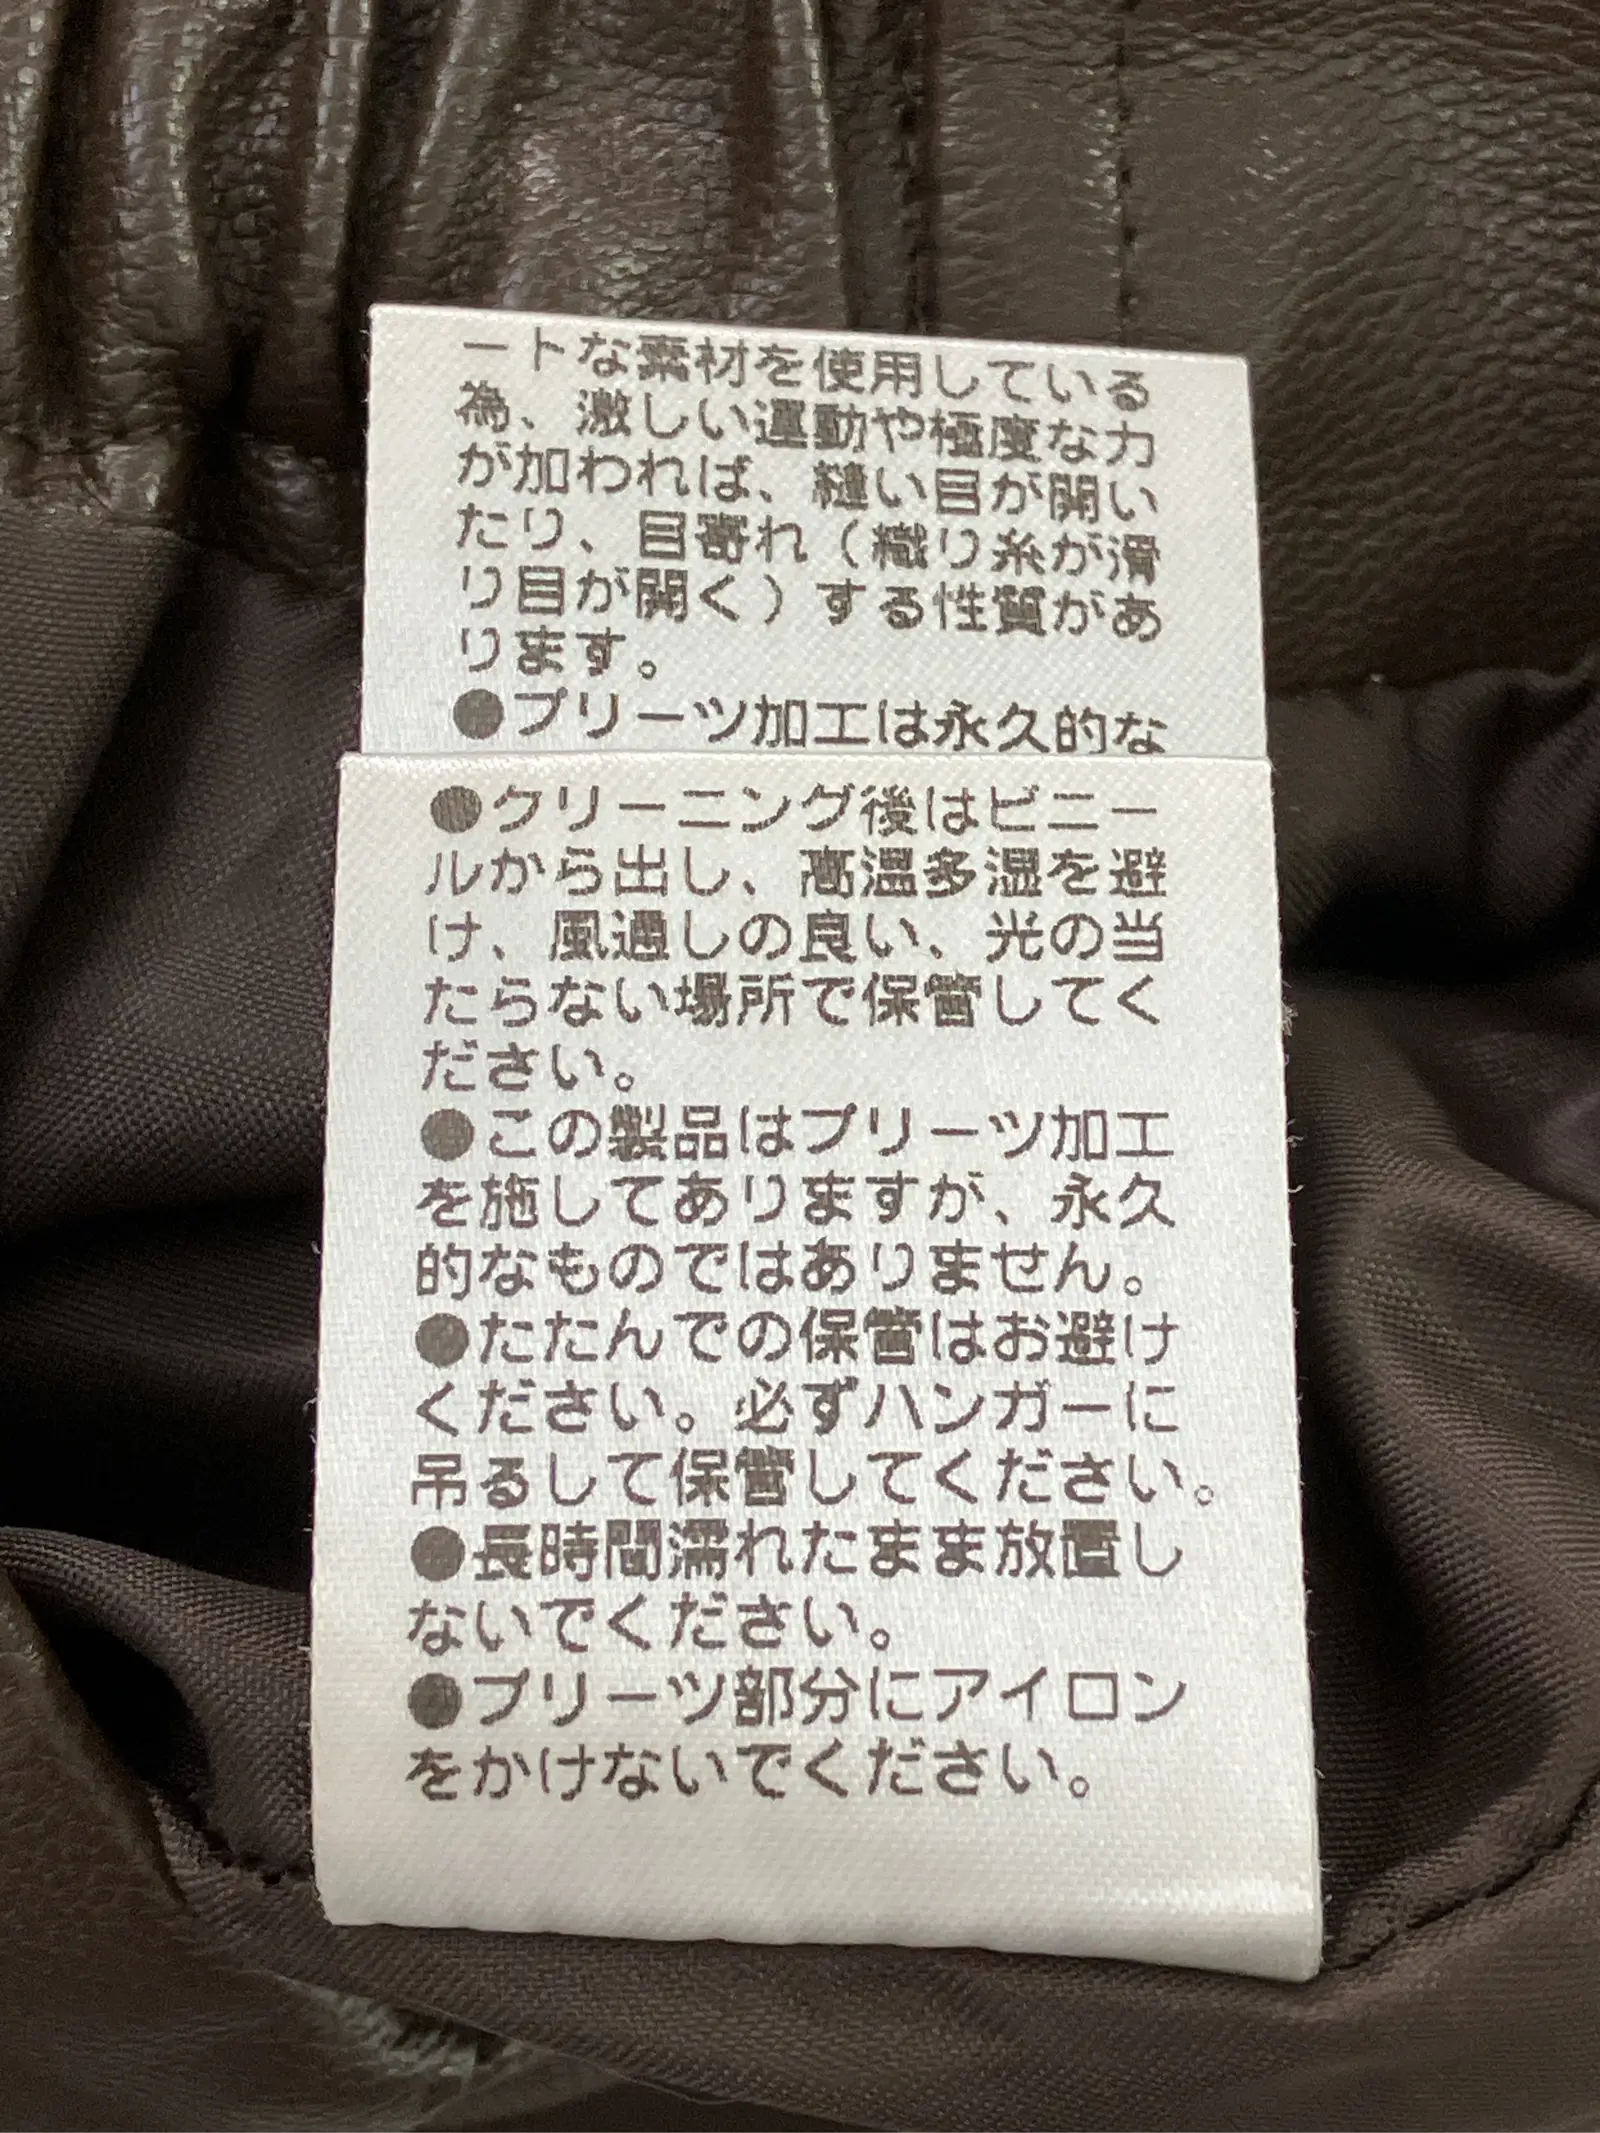 ートな素材を使用している
為、激しい運動や極度な力
が加われば、縫い目が開い
たり、目寄れ（織り糸が滑
り目が開く）する性質があ
ります。
●プリーツ加工は永久的な
●クリーニング後はビニー
ルから出し、高温多湿を避
け、風通しの良い、光の当
たらない場所で保管してく
ださい。
●この製品はプリーツ加工
を施してありますが、永久
的なものではありません。
●たたんでの保管はお避け
ください。必ずハンガーに
吊るして保管してください。
●長時間濡れたまま放置し
ないでください。
●プリーツ部分にアイロン
をかけないでください。